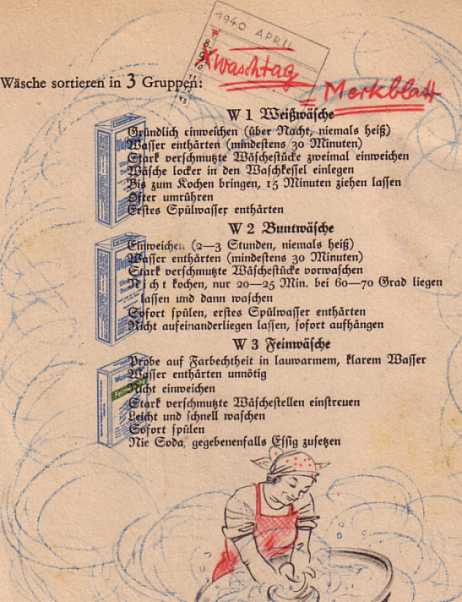 1940 APRIL
Waschtag
Merkblatt
Wäsche sortieren in 3 Gruppen:
W 1 Weißwäsche
Gründlich einweichen (über Nacht, niemals heiß)
Wasser enthärten (mindestens 30 Minuten)
Stark verschmutzte Wäschestücke zweimal einweichen
Wäsche locker in den Waschkessel einlegen
Bis zum Kochen bringen, 15 Minuten ziehen lassen
Öfter umrühren
Erstes Spülwasser enthärten
W 2 Buntwäsche
Einweichen (2—3 Stunden, niemals heiß)
Wasser enthärten (mindestens 30 Minuten)
Stark verschmutzte Wäschestücke vorwaschen
Nicht kochen, nur 20—25 Min. bei 60—70 Grad liegen
lassen und dann waschen
Sofort spülen, erstes Spülwasser enthärten
Nicht aufeinanderliegen lassen, sofort aufhängen
W 3 Feinwäsche
Probe auf Farbechtheit in lauwarmem, klarem Wasser
Wasser enthärten unnötig
Nicht einweichen
Stark verschmutzte Wäschestellen einstreuen
Leicht und schnell waschen
Sofort spülen
Nie Soda, gegebenenfalls Essig zusetzen